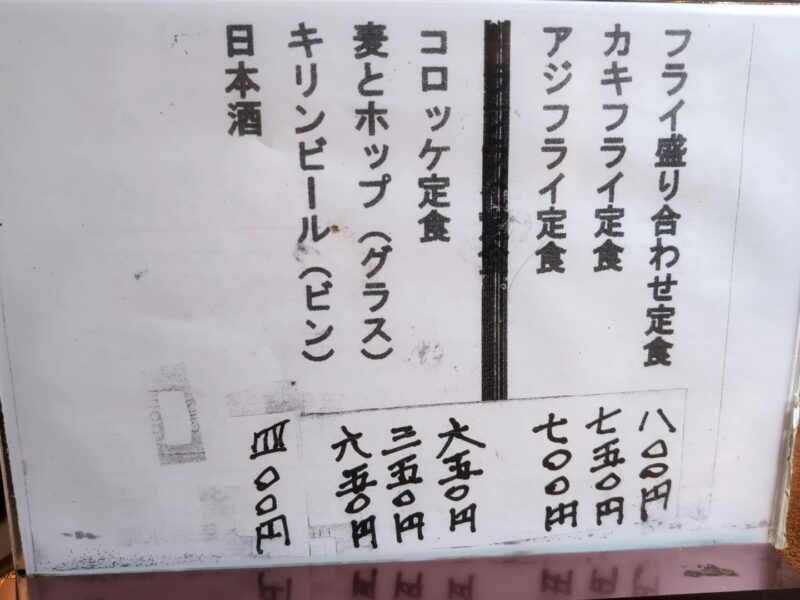 フライ盛り合わせ定食 八〇〇円
カキフライ定食 七五〇円
アジフライ定食 七〇〇円
コロッケ定食 六五〇円
麦とホップ（グラス） 三五〇円
キリンビール（ビン） 六五〇円
日本酒 四〇〇円